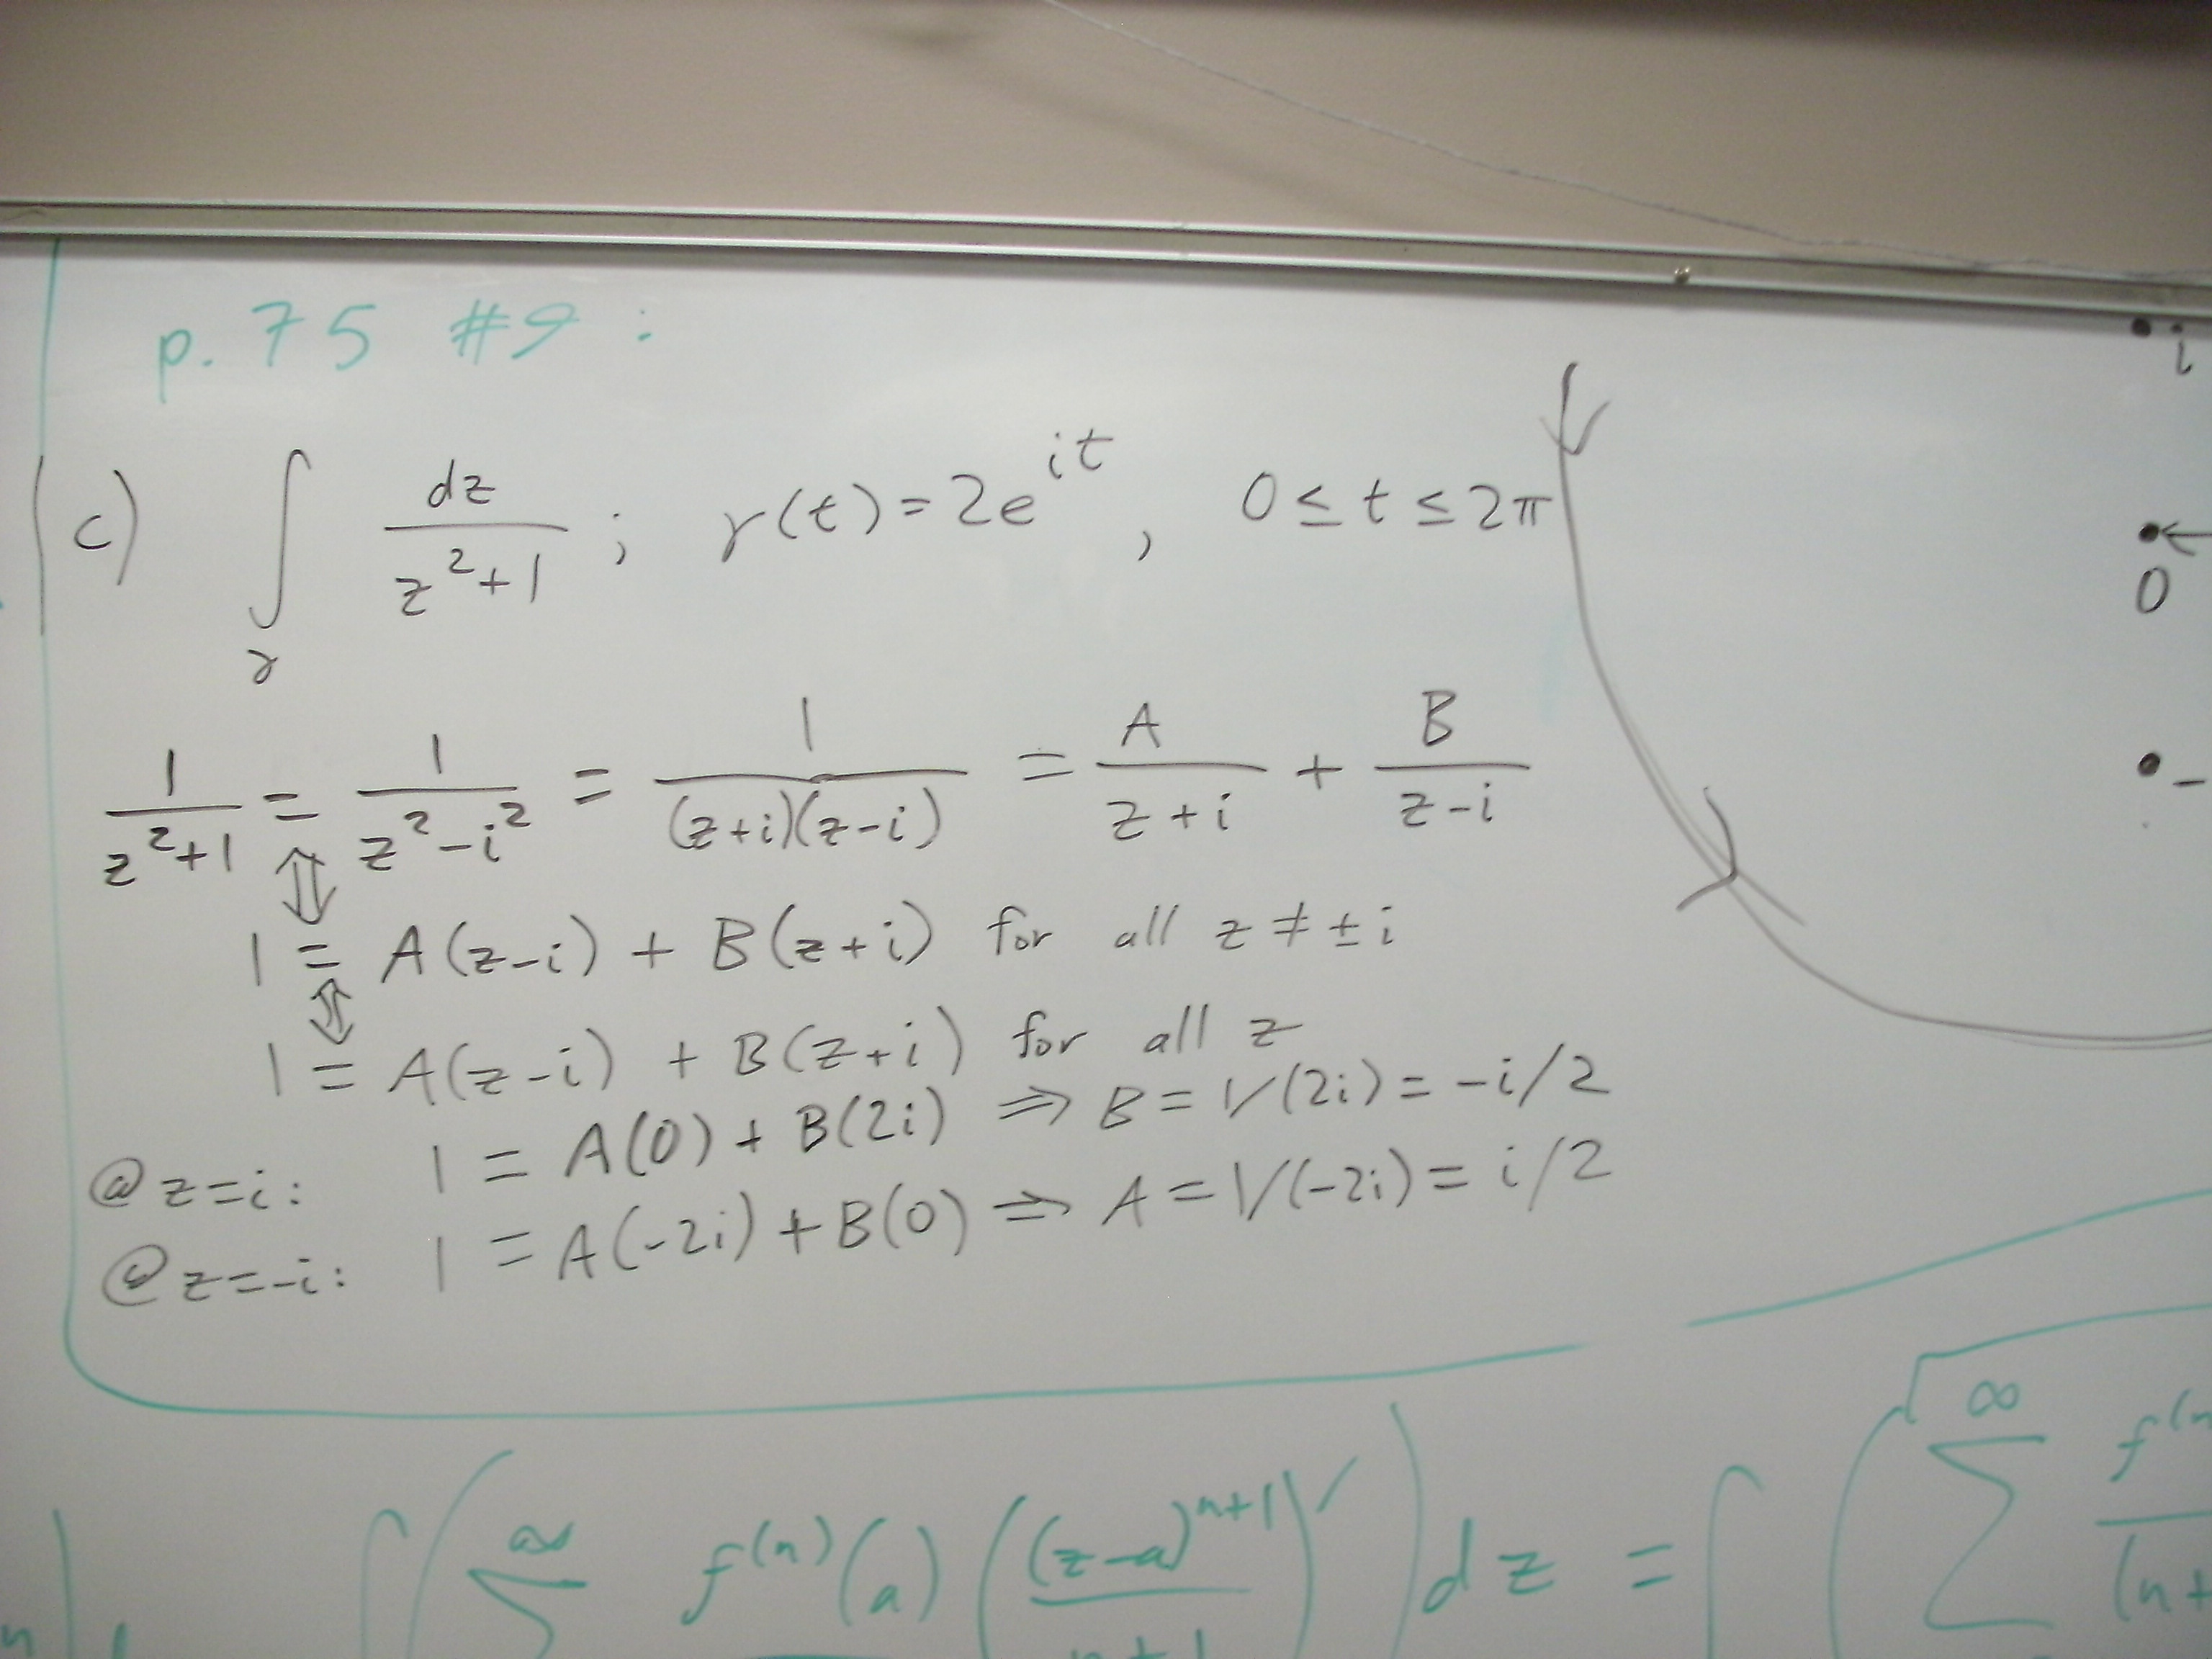 p. 75 #9:
c) ∫_γ dz/(z²+1) ; γ(t) = 2e^{it}, 0 ≤ t ≤ 2π
1/(z²+1) = 1/(z²-i²) = 1/((z+i)(z-i)) = A/(z+i) + B/(z-i)
⇕
1 = A(z-i) + B(z+i) for all z ≠ ±i
⇕
1 = A(z-i) + B(z+i) for all z
@ z=i: 1 = A(0) + B(2i) ⇒ B = 1/(2i) = -i/2
@ z=-i: 1 = A(-2i) + B(0) ⇒ A = 1/(-2i) = i/2
i
0
-
∫ ( ∑^∞ f^{(n)}(a) ((z-a)^{n+1}/(n+1)) )' dz = ∫ ( ∑^∞ f^{(n
(n+